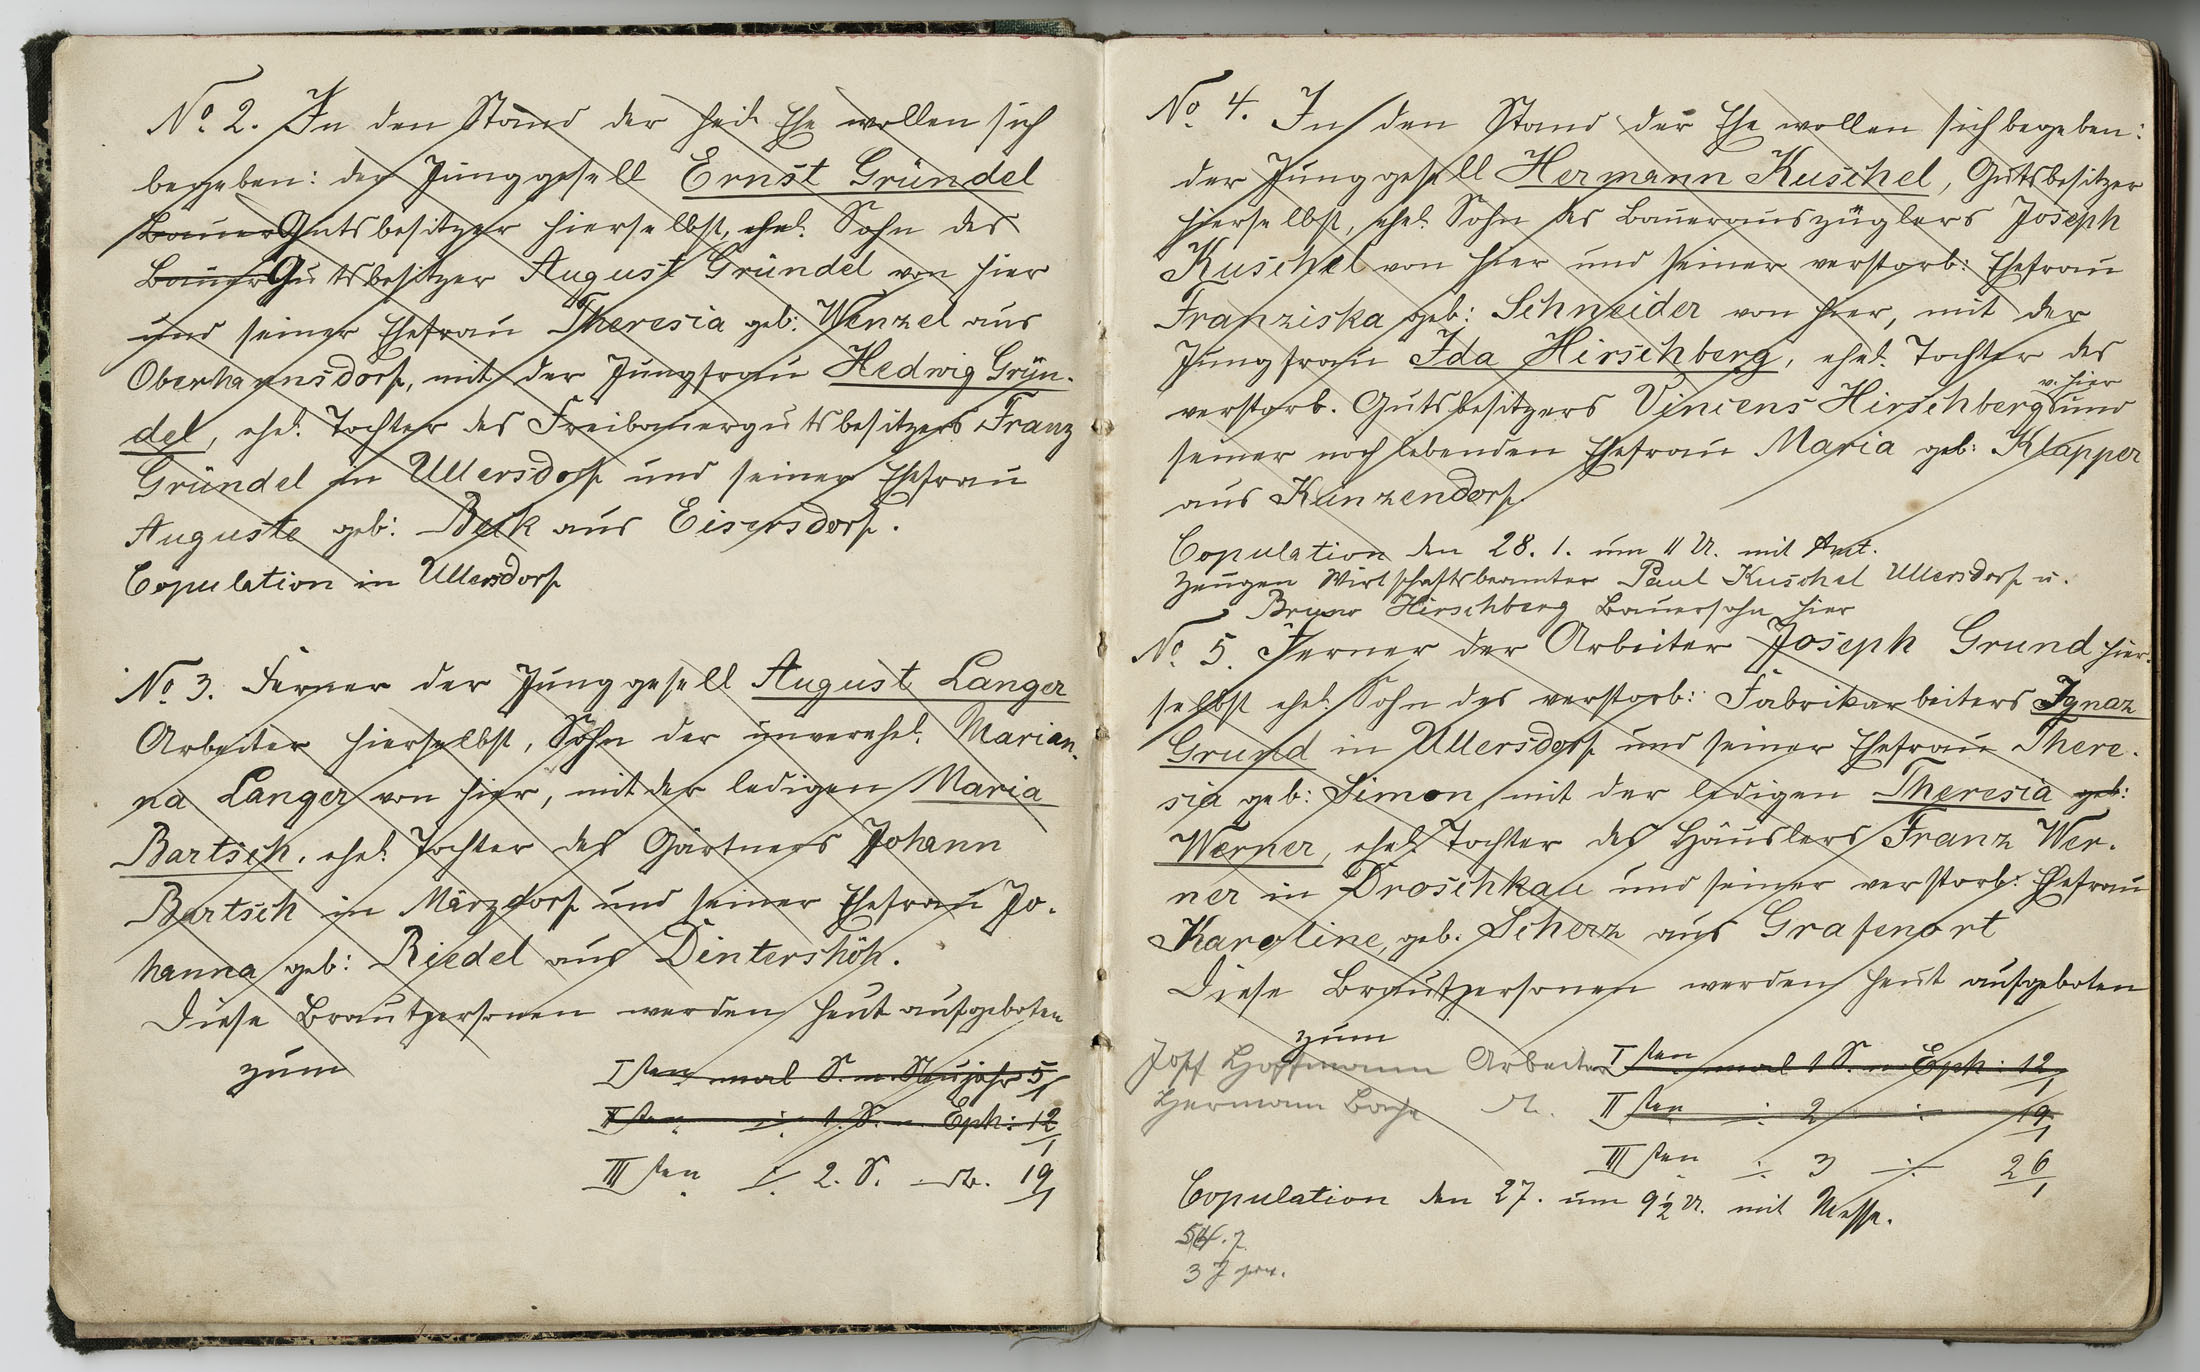 No. 2. In den Stand der heil. Ehe wollen sich
begeben: der Junggesell Ernst Gründel
Bauer Gutsbesitzer hierselbst, ehel. Sohn des
Bauer Gutsbesitzer August Gründel von hier
und seiner Ehefrau Theresia geb: Wenzel aus
Oberhannsdorf, mit der Jungfrau Hedwig Grün-
del, ehel. Tochter des Freibauergutsbesitzers Franz
Gründel in Ullersdorf und seiner Ehefrau
Auguste geb: Beck aus Eisersdorf.
Copulation in Ullersdorf
No. 3. Ferner der Junggesell August Langer
Arbeiter hierselbst, Sohn der unverehel. Marian-
na Langer von hier, mit der ledigen Maria
Bartsch, ehel. Tochter des Gärtners Johann
Bartsch in Märzdorf und seiner Ehefrau Jo-
hanna geb: Riedel aus Dintershöh.
Diese Brautpersonen werden heut aufgeboten
zum
I sten mal S. n. Neujahr 5/1
II sten ÷ 1. S. n. Eph: 12/1
III sten ÷ 2. S. do. 19/1
No. 4. In den Stand der Ehe wollen sich begeben:
der Junggesell Hermann Kuschel, Gutsbesitzer
hierselbst, ehel. Sohn des Bauerauszüglers Joseph
Kuschel von hier und seiner verstorb: Ehefrau
Franziska geb: Schneider von hier, mit der
Jungfrau Ida Hirschberg, ehel. Tochter des
v. hier
verstorb. Gutsbesitzers Vincens Hirschberg und
seiner noch lebenden Ehefrau Maria geb: Klapper
aus Kunzendorf.
Copulation den 28. 1. um 11 U. mit Amt.
Zeugen Wirtschaftsbeamter Paul Kuschel Ullersdorf u.
Bruno Hirschberg Bauersohn hier
No. 5. Ferner der Arbeiter Joseph Grund hier-
selbst ehel. Sohn des verstorb: Fabrikarbeiters Ignaz
Grund in Ullersdorf und seiner Ehefrau There-
sia geb: Simon, mit der ledigen Theresia geb:
Werner, ehel. Tochter des Häuslers Franz Wer-
ner in Droschkau und seiner verstorb: Ehefrau
Karoline, geb. Scherz aus Grafenort
Diese Brautpersonen werden heut aufgeboten
zum
Josf Hoffmann Arbeiter
I sten mal 1 S. n. Eph: 12/1
Hermann do.
II sten ÷ 2 ÷ 19/1
III sten ÷ 3 ÷ 26/1
Copulation den 27. um 9½ U. mit Messe.